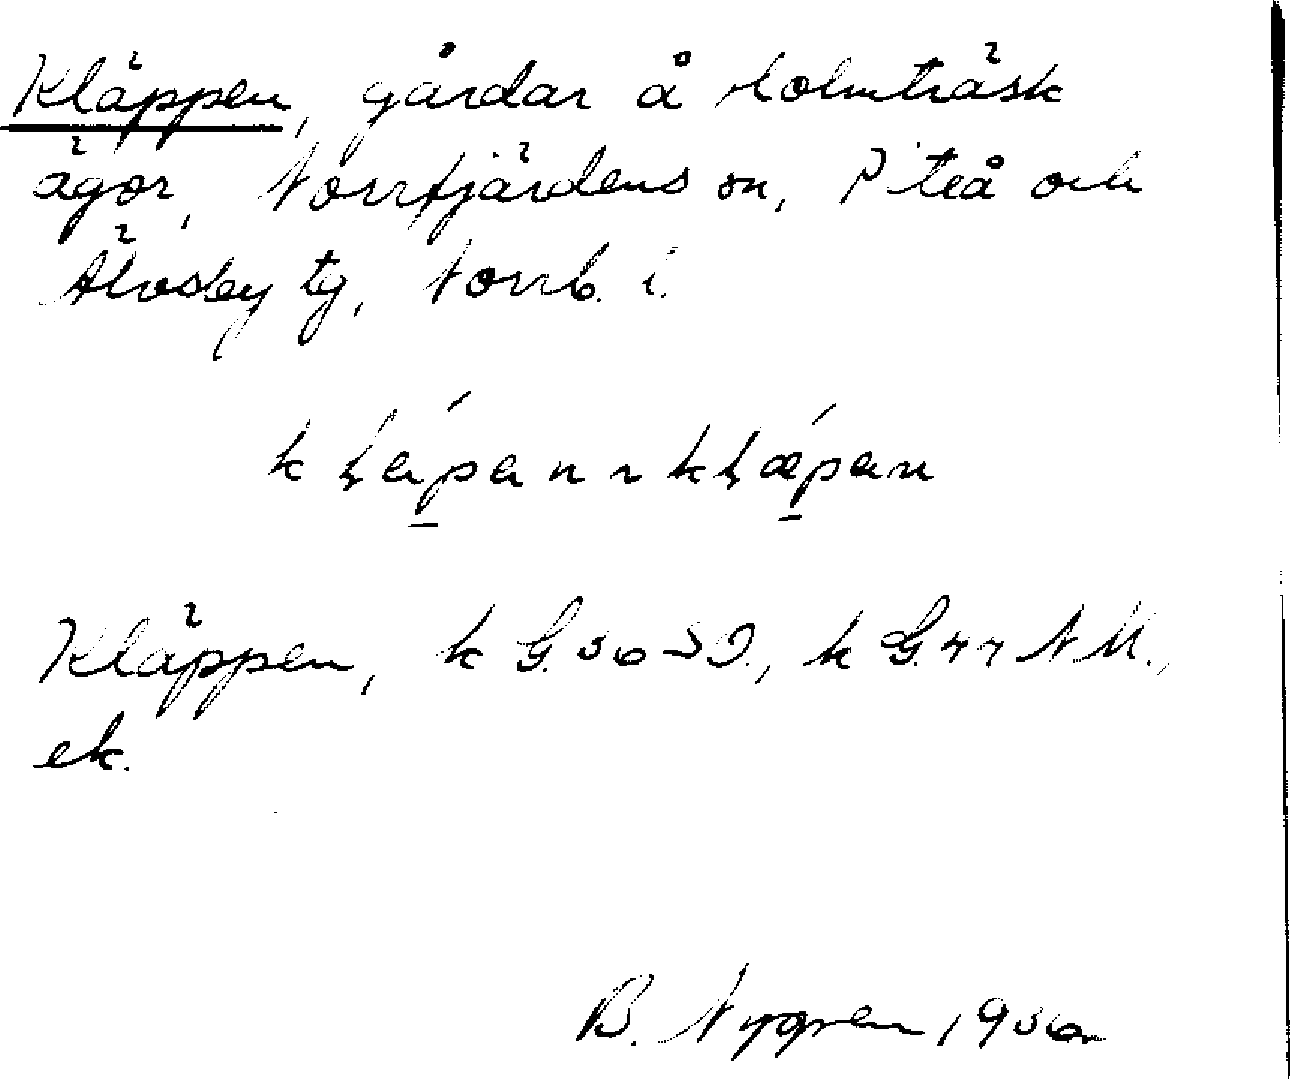 Kläppen, gårdar å Holmträsk
ägor, Norrfjärdens sn, Piteå och
Älvsby tg, Norrb. l.
Kläppen, k G. 36 SO., k G. 44 NM.,
ek.
B. Nygren 1936